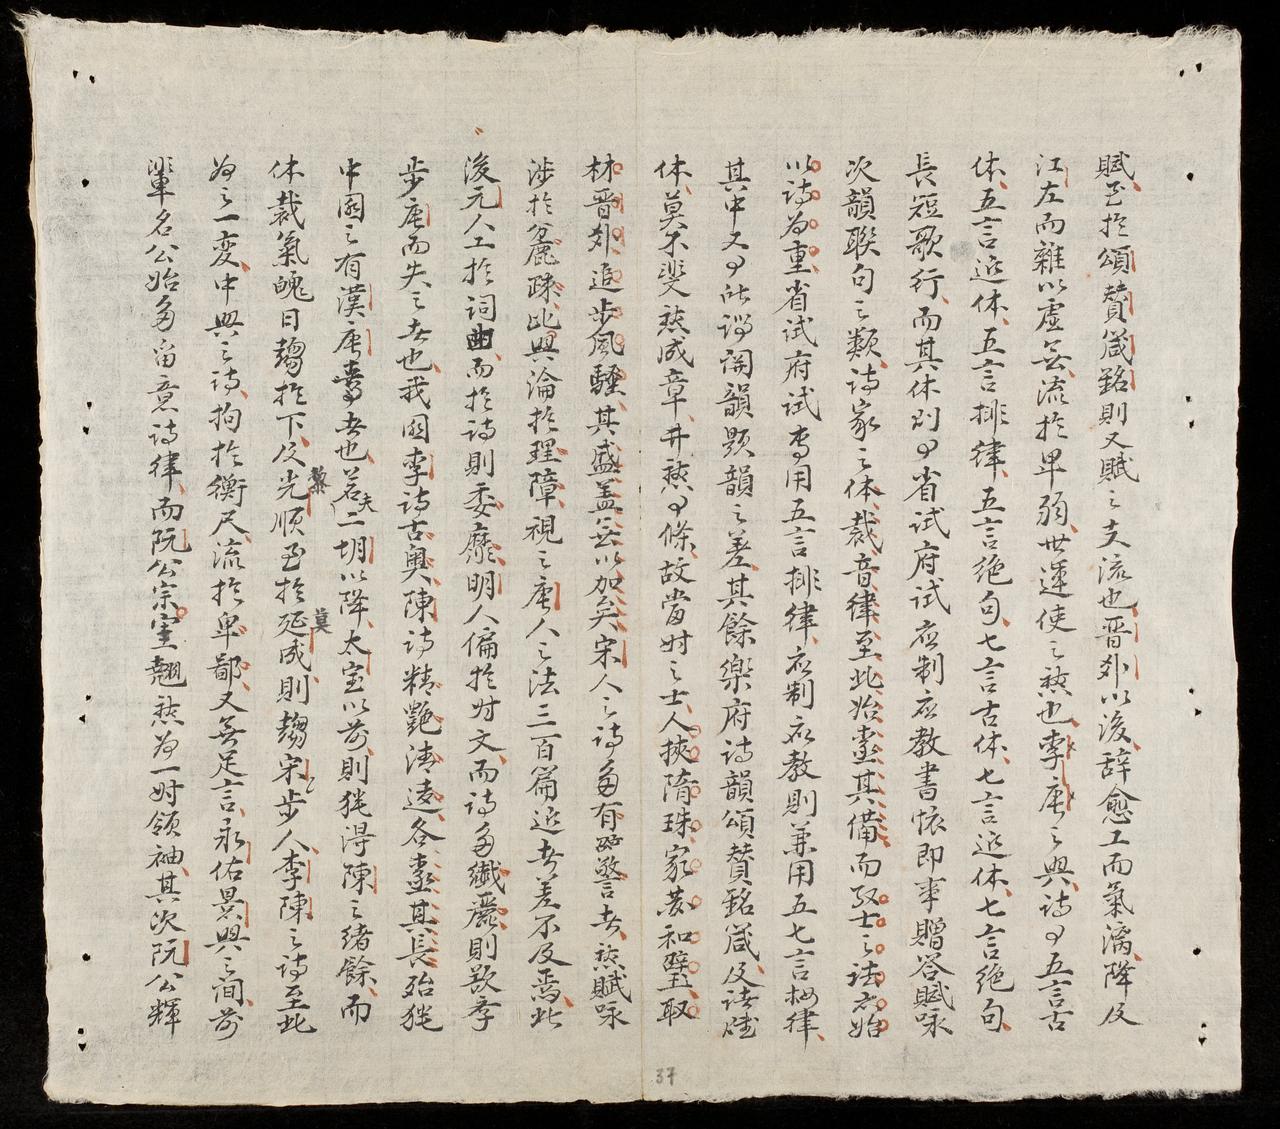 賦、至於頌贊箴銘則又賦之支流也、晋外以後、辞愈工而氣漓、降及
江左而雜以虛無、流於卑弱、世運使之然也、李唐之興、詩有五言古
体、五言近体、五言排律、五言絶句、七言古体、七言近体、七言絶句、
長短歌行、而其体則有省試府試应制应教書懷即事贈答賦咏
次韻聯句之類、詩家之体裁音律至此始盡其備、而取士之法亦始
以詩为重、省試府試專用五言排律、应制应教則兼用五七言排律、
其中又有所謂開韻題韻之差、其餘樂府詩韻頌贊銘箴及諸
体、莫不斐然成章、井然有條、故當时之士、人挾隋珠、家藏和璧、取
材晋外、追步風騷、其盛盖無以加矣、宋人之詩多有警者、然賦咏
涉於麄疎、比興淪於理障、視之唐人之法三百篇近者差不及焉、此
後元人工於詞曲、而於詩則委靡、明人偏於时文、而詩多纖麗、則欲季
步唐而失之者也、我國李詩古奥、陳詩精艶清遠、各盡其長、殆犹
中國之有漢唐者也、若夫二胡以降、太宝以前、則犹得陳之緒餘、而
体裁氣魄日趨於下、及光順至於延成、則趨宋步人、李陳之詩至此
黎
莫
为之一变、中興之詩、拘於衡尺、流於卑鄙、又無足言、永佑景興之间、前
輩名公始多留意詩律、而阮公宗室翹然为一时領袖、其次阮公輝
37